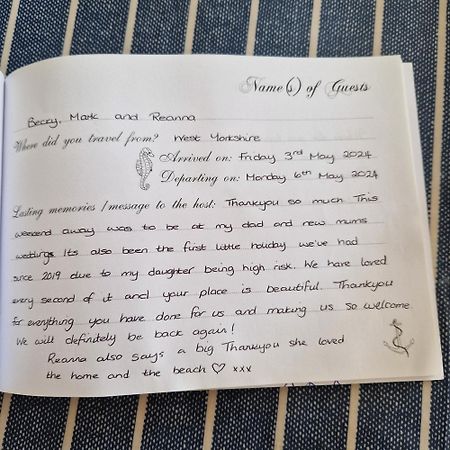 Name(s) of Guests
Becky, Mark and Reanna
Where did you travel from? West Yorkshire
Arrived on: Friday 3rd May 2024
Departing on: Monday 6th May 2024
Lasting memories / message to the host: Thankyou so much This
weekend away was to be at my dad and new mums
weddings Its also been the first little holiday we've had
since 2019 due to my daughter being high risk. We have loved
every second of it and your place is beautiful. Thankyou
for everything you have done for us and making us so welcome.
We will definitely be back again!
Reanna also says a big Thankyou she loved
the home and the beach ♡ xxx